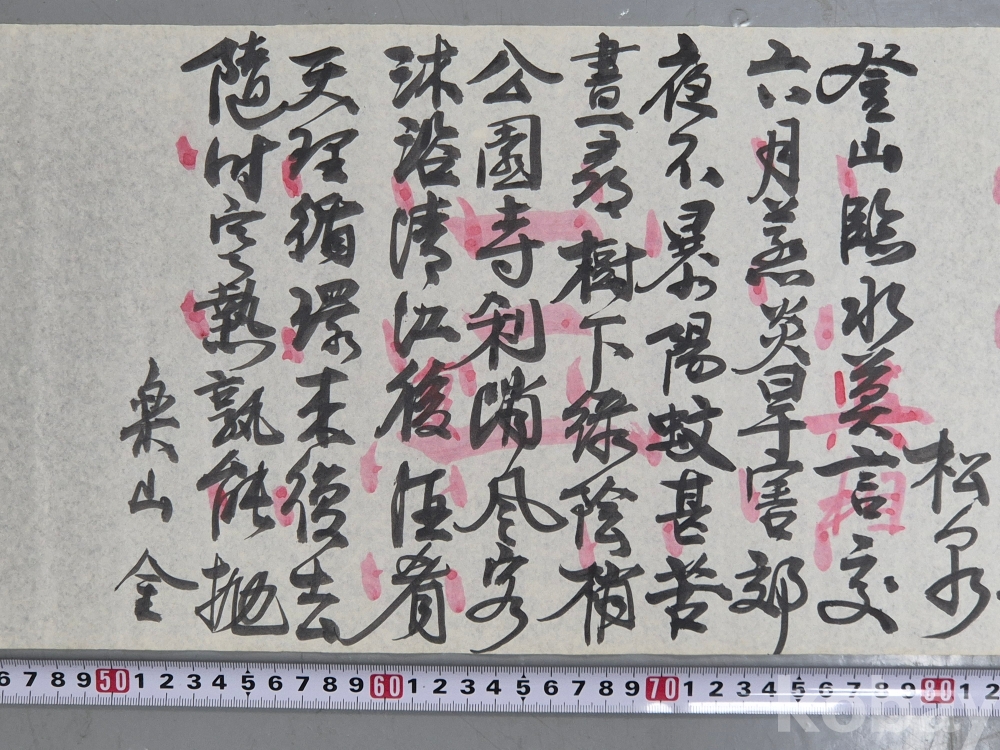 松泉
登山臨水莫言交
六月蒸炎旱害郊
夜不暴陽蚊甚苦
晝尋樹下綠陰梢
公園寺刹滿風客
沐浴清江後酒肴
天理循環来復去
隨時寒熱孰能抛
樂山 金
6 7 8 9 50 1 2 3 4 5 6 7 8 9 60 1 2 3 4 5 6 7 8 9 70 1 2 3 4 5 6 7 8 9 80 1 2